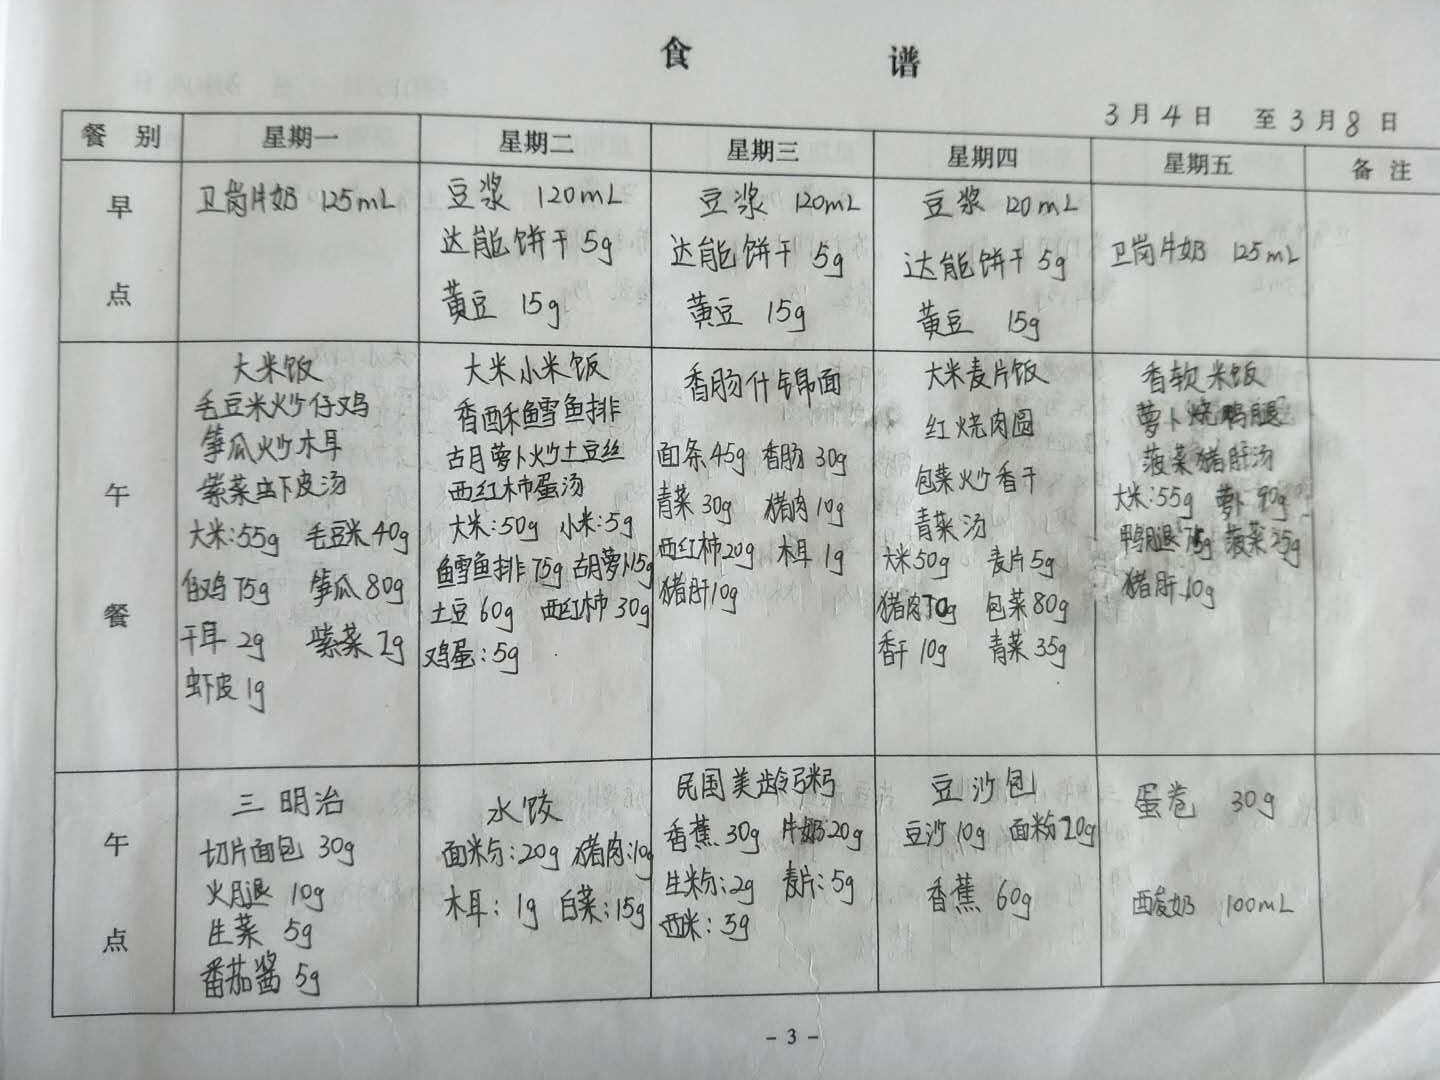 食 谱
3月4日 至3月8日
餐 别 星期一 星期二 星期三 星期四 星期五 备 注
早点
卫岗牛奶 125mL
豆浆 120mL
达能饼干 5g
黄豆 15g
豆浆 120mL
达能饼干 5g
黄豆 15g
豆浆 120mL
达能饼干 5g
黄豆 15g
卫岗牛奶 125mL
午餐
大米饭
毛豆米炒仔鸡
笋瓜炒木耳
紫菜虾皮汤
大米:55g 毛豆米40g
仔鸡75g 笋瓜80g
干耳2g 紫菜2g
虾皮1g
大米小米饭
香酥鳕鱼排
胡萝卜炒土豆丝
西红柿蛋汤
大米:50g 小米:5g
鳕鱼排75g 胡萝卜15g
土豆60g 西红柿30g
鸡蛋:5g
香肠什锦面
面条45g 香肠30g
青菜30g 猪肉10g
西红柿20g 木耳1g
猪肝10g
大米麦片饭
红烧肉圆
包菜炒香干
青菜汤
大米50g 麦片5g
猪肉70g 包菜80g
香干10g 青菜35g
香软米饭
萝卜烧鸭腿
菠菜猪肝汤
大米:55g 萝卜90g
鸭腿75g 菠菜35g
猪肝10g
午点
三明治
切片面包 30g
火腿 10g
生菜 5g
番茄酱 5g
水饺
面粉:20g 猪肉:10g
木耳:1g 白菜:15g
民国美龄粥
香蕉30g 牛奶20g
生粉:2g 麦片:5g
西米:5g
豆沙包
豆沙10g 面粉20g
香蕉 60g
蛋卷 30g
酸奶 100mL
- 3 -